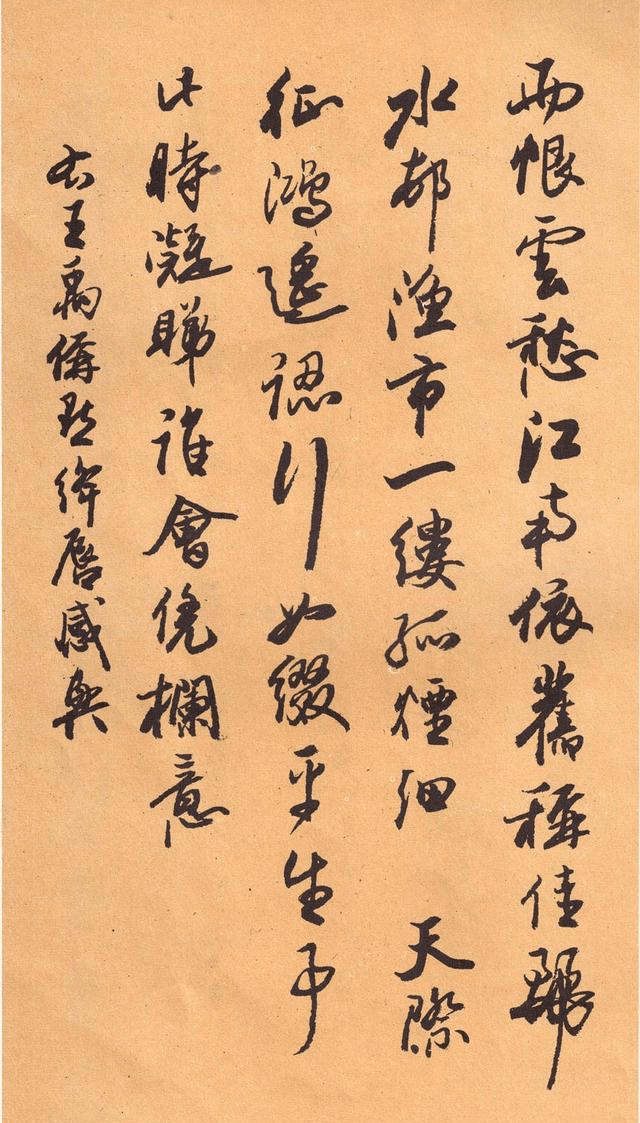 雨恨雲愁江南依舊稱佳麗
水邨漁市一縷孤煙細　天際
征鴻遙認行如綴平生事
此時凝睇誰會凭欄意
右王禹偁點絳唇感興